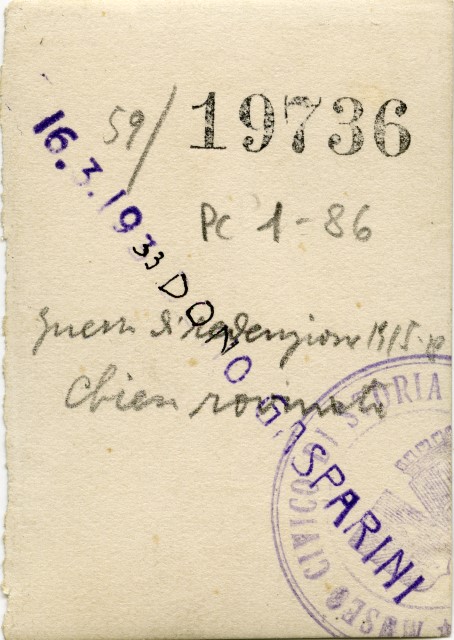 59/ 19736
16.3.1933 DONO GASPARINI
Pc 1-86
guerra di redenzione 1915-18
Chiesa rovinata
MUSEO CIVICO DI STORIA